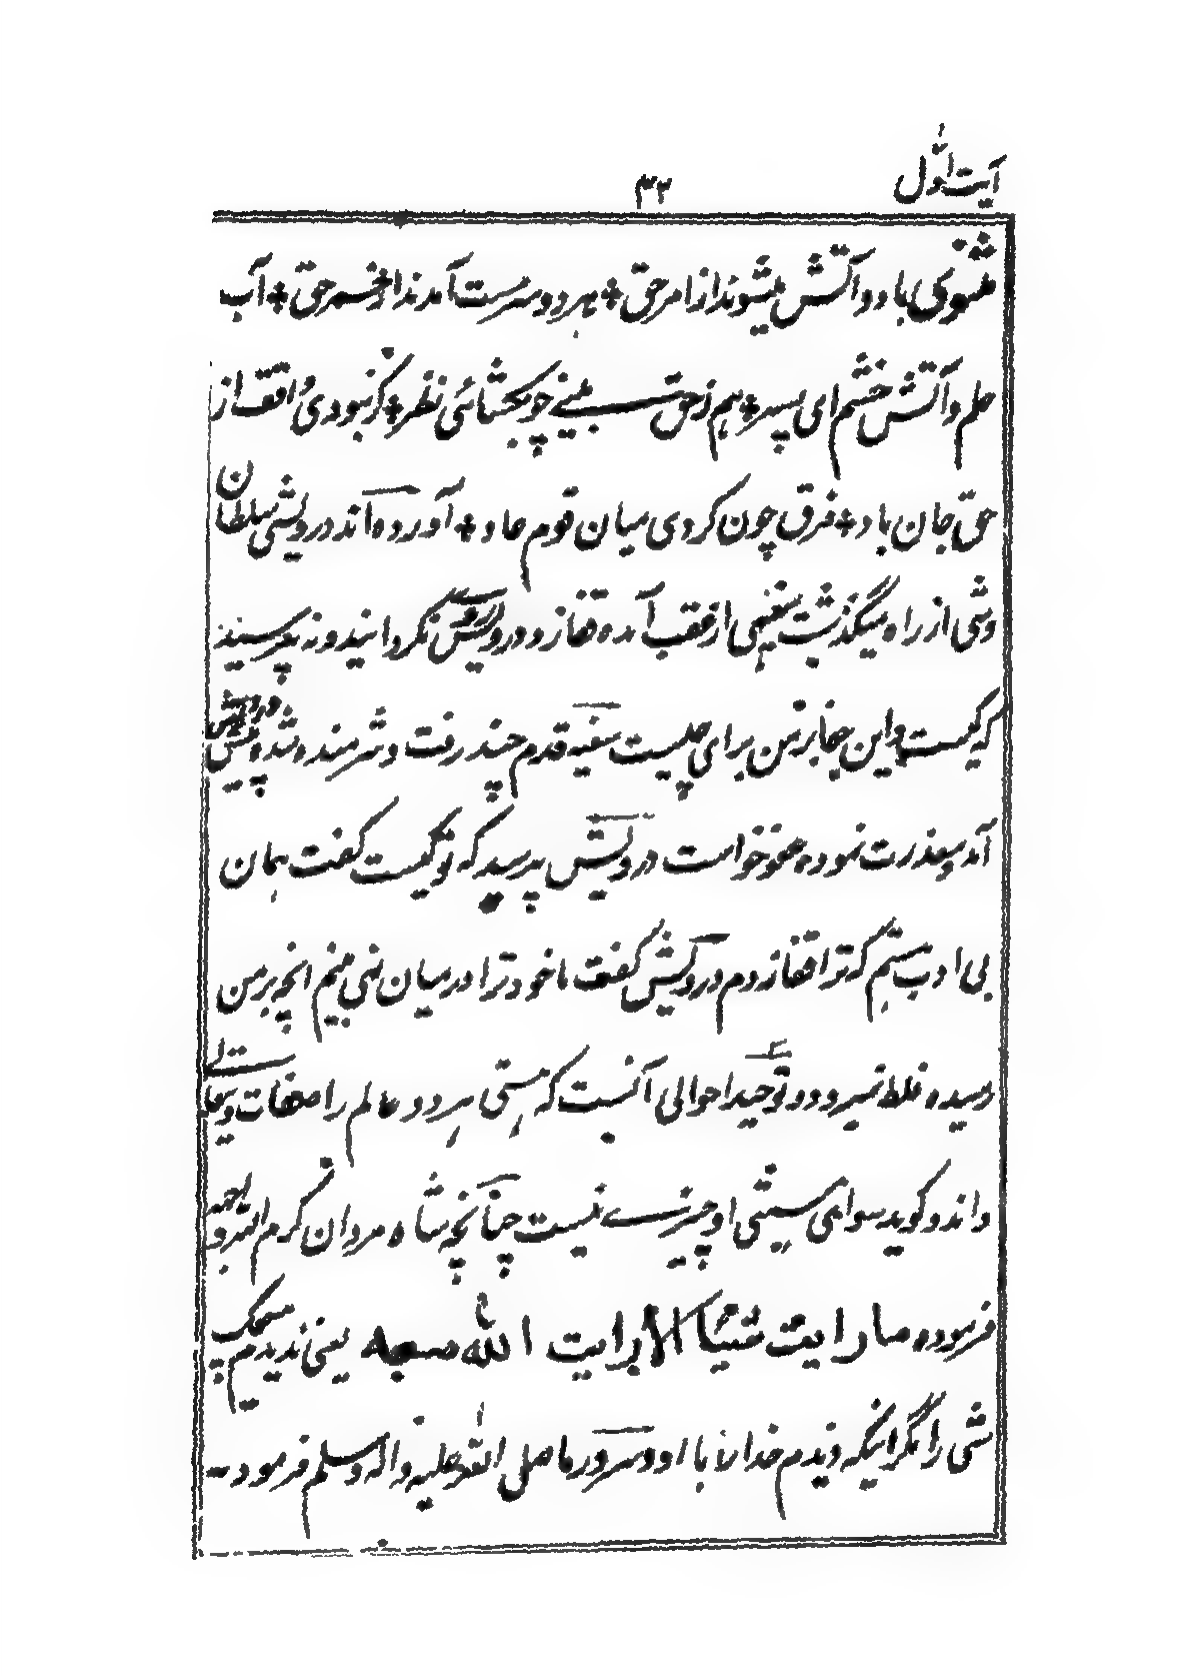 آیت اوّل
۴۲
مثنوی باد و آتش میشوند از امر حق * هر دو سرمست آمدند از خمر حق * آب
حلم و آتش خشم ای پسر * هم ز حق بینی چو بکشائی نظر * گر نبودی واقف از
حق جان باد * فرق چون کردی میان قوم عاد * آورده اند درویشی سلطان
وشی از راه میگذشت سفیهی از عقب آمده قفا زد و درویش رو نگردانید و نه پرسیند
که کیست و این جفا بر من برای چیست سفیه قدم چند رفت و شرمنده شده پیش درویش
آمد و معذرت نموده عفو خواست درویش پرسید که تو کیست گفت همان
بی ادب هستم که ترا قفا زدم درویش گفت ما خود ترا در میان نمی بینم انچه بر من
رسیده غلط نمیرود و توحید احوالی آنست که هستی هر دو عالم را صفات ویتعالی
داند و گوید سوای هستی او چیزے نیست چنانچه شاه مردان کرم الله وجهه
فرموده ما رایت شیئا الا رایت الله معه یعنی ندیدم هیچ یک
شی را مگر اینکه دیدم خدا را با او و سرور ما صلی الله علیه و آله وسلم فرمود